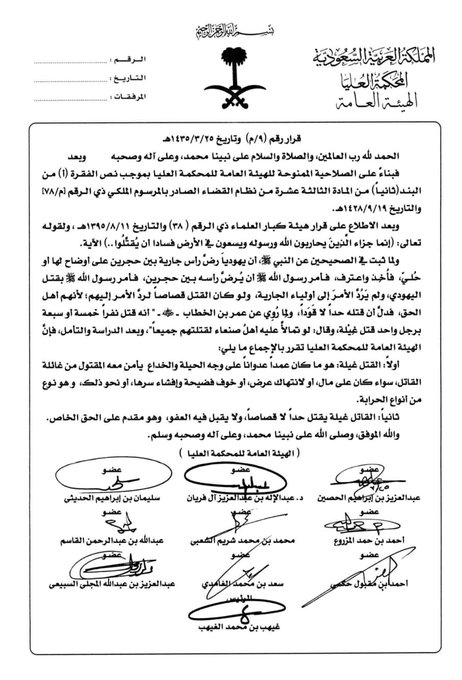 بسم الله الرحمن الرحيم
المملكة العربية السعودية
المحكمة العليا
الهيئة العامة
الرقم :
التاريخ :
المرفقات :
قرار رقم (٩/م) وتاريخ ١٤٣٥/٣/٢٥هـ
الحمد لله رب العالمين، والصلاة والسلام على نبينا محمد، وعلى آله وصحبه وبعد
فبناءً على الصلاحية الممنوحة للهيئة العامة للمحكمة العليا بموجب نص الفقرة (أ) من
البند (ثانياً) من المادة الثالثة عشرة من نظام القضاء الصادر بالمرسوم الملكي ذي الرقم [م/٧٨]
والتاريخ ١٤٢٨/٩/١٩هـ.
وبعد الاطلاع على قرار هيئة كبار العلماء ذي الرقم (٣٨) والتاريخ ١٣٩٥/٨/١١هـ، ولقوله
تعالى: (إنما جزاء الَّذينَ يحاربون الله ورسوله ويسعون في الأرض فسادا أن يُقتَّلُوا..) الآية.
وبما ثبت في الصحيحين عن النبي ﷺ، أن يهودياً رضَّ رأس جارية بين حجرين على أوضاح لها أو
حُليّ، فأُخِذ واعترف، فأمر رسول الله ﷺ أن يُرضَّ رأسه بين حجرين، فأمر رسول الله ﷺ بقتل
اليهودي، ولم يَرُدَّ الأمرَ إلى أولياء الجارية، ولو كان القتل قصاصاً لردَّ الأمر إليهم؛ لأنهم أهل
الحق، فدلَّ أن قتله حداً لا قَوَداً، ولما رُوي عن عمر بن الخطاب - - "أنه قتل نفراً خمسة أو سبعة
برجل واحد قتل غِيْلة، وقال: لو تمالأ عليه أهلُ صنعاء لقتلتهم جميعاً"، وبعد الدراسة والتأمل، فإنَّ
الهيئة العامة للمحكمة العليا تقرر بالإجماع ما يلي:
أولاً: القتل غيلة: هو ما كان عمداً عدواناً على وجه الحيلة والخداع يأمن معه المقتول من غائلة
القاتل، سواء كان على مال، أو لانتهاك عرض، أو خوف فضيحة وإفشاء سرها، أو نحو ذلك، و هو نوع
من أنواع الحرابة.
ثانياً: القاتل غيلة يقتل حداً لا قصاصاً، ولا يقبل فيه العفو، وهو مقدم على الحق الخاص.
والله الموفق، وصلى الله على نبينا محمد، وعلى آله وصحبه وسلم.
( الهيئة العامة للمحكمة العليا )
عضو عضو عضو
عبدالعزيز بن إبراهيم الحصين د. عبدالإله بن عبدالعزيز آل فريان سليمان بن إبراهيم الحديثي
عضو عضو عضو
أحمد بن حمد المزروع محمد بن محمد شريم الشعبي عبدالله بن عبدالرحمن القاسم
عضو عضو عضو
أحمد بن مقبول حكمي سعد بن محمد الغامدي عبدالعزيز بن عبدالله المجلي السبيعي
الرئيس
غيهب بن محمد الغيهب